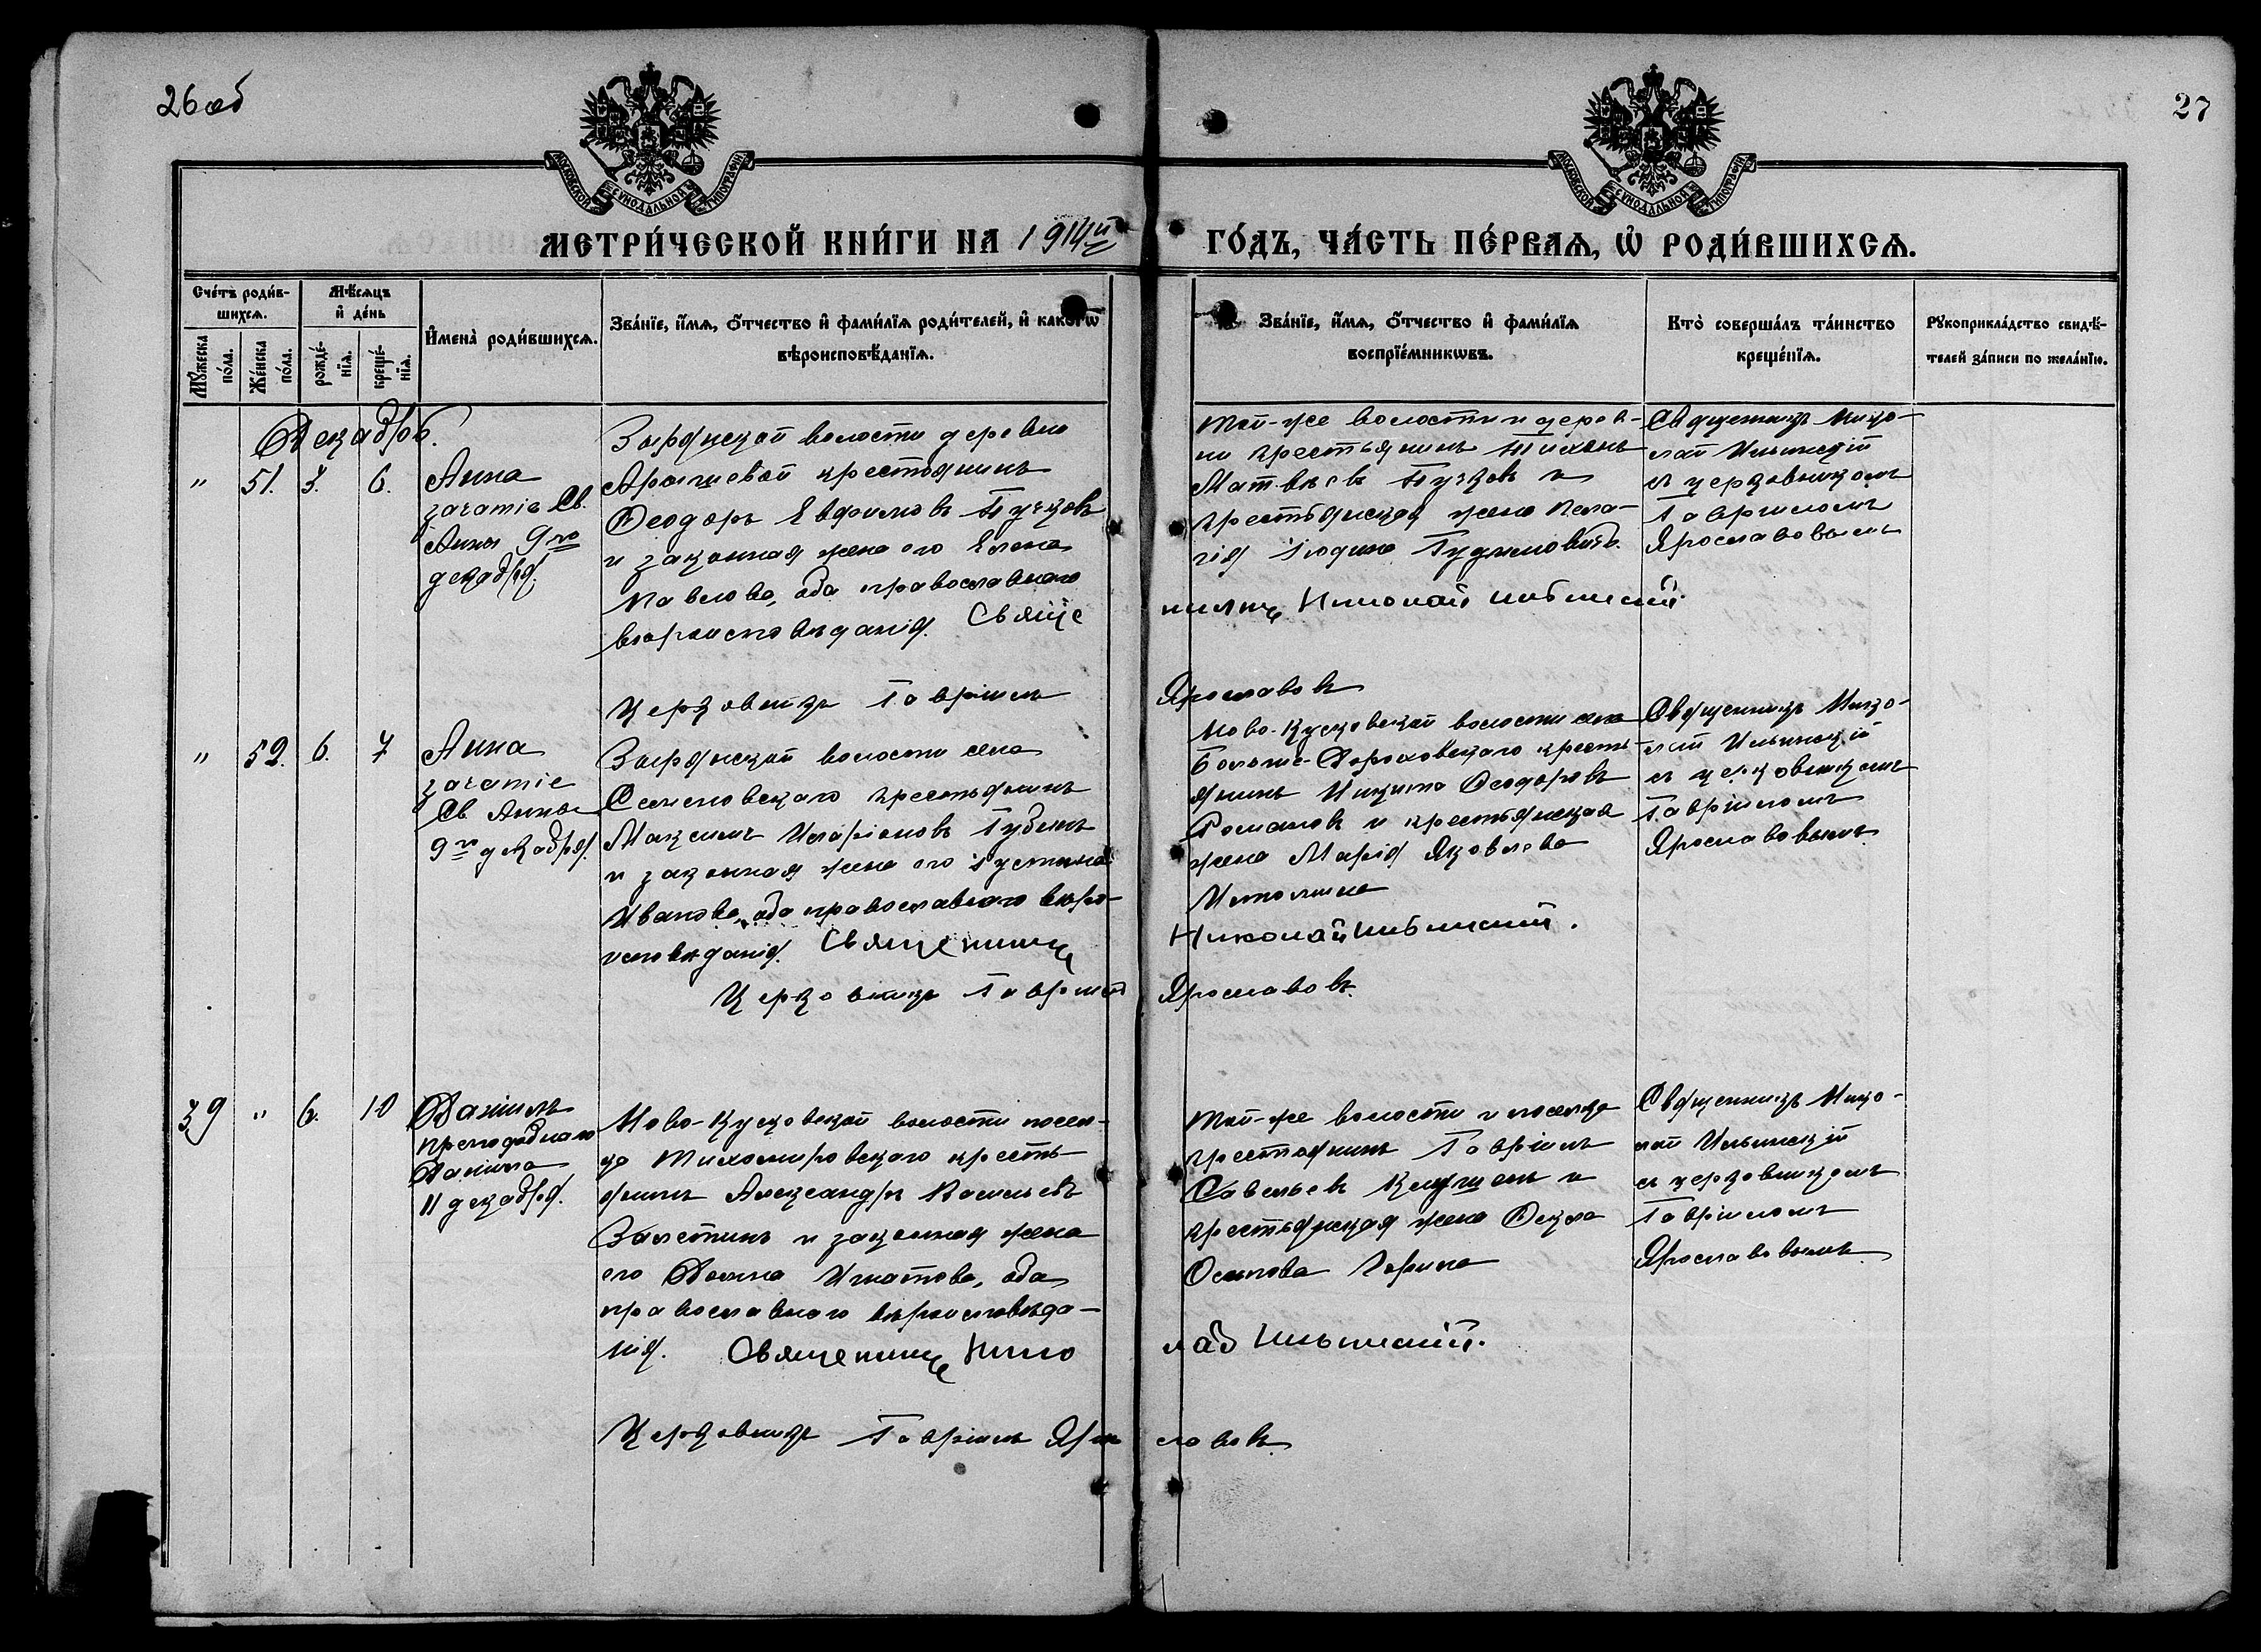 26 об
27
МОСКОВСКОЙ СѴНОДАЛЬНОЙ ТИПОГРАФІИ
МОСКОВСКОЙ СѴНОДАЛЬНОЙ ТИПОГРАФІИ
МЕТРИ́ЧЕСКОЙ КНИ́ГИ НА 1914й ГО́ДЪ, ЧА́СТЬ ПЕ́РВАѦ, Ѡ҆ РОДИ́ВШИХСѦ.
Сче́тъ роди́в-
шихсѧ.
Мꙋ́жеска по́ла.
Же́нска по́ла.
Мѣ́сѧцъ
и҆ де́нь
рожде́-
нїѧ.
креще́-
нїѧ.
И҆мена̀ роди́вшихсѧ.
Зва́нїе, и҆́мѧ, ѻ҆́тчество и҆ фами́лїѧ роди́телей, и҆ како́гѡ
вѣроисповѣ́данїѧ.
Зва́нїе, и҆́мѧ, ѻ҆́тчество и҆ фами́лїѧ
воспрїе́мникѡвъ.
Кто̀ соверша́лъ та́инство
креще́нїѧ.
Рꙋкоприкла́дство свидѣ́-
телей за́писи по жела́нїю.
Декабрь.
" 51. 3. 6.
Анна
зачатіе Св.
Анны 9го
декабря.
Зырянской волости деревни
крестьянинъ
Ѳеодоръ Евфимовъ Пучковъ
и законная жена его Елена
Павлова, оба православнаго
вѣроисповѣданія. Свяще
Церковникъ Гавріилъ
Той-же волости и дерев-
ни крестьянинъ Тихонъ
Матвѣевъ Пучковъ и
крестьянская жена Пела-
гія
нникъ Николай Ильинскій.
Ярославовъ
Священникъ Нико-
лай Ильинскій
съ церковникомъ
Гавріиломъ
Ярославовымъ
" 52. 6. 7
Анна
зачатіе
Св Анны
9го декабря.
Зырянской волости села
Семеновскаго крестьянинъ
Максимъ Иларіоновъ Губинъ
и законная жена его Іустина
Иванова, оба православнаго вѣро-
исповѣданія. Священникъ
Церковникъ Гавріилъ
Ново-Кусковской волости села
Больше-Дороховскаго кресть-
янинъ Никита Ѳеодоровъ
Романовъ и крестьянская
жена Марія Яковлева
Николай Ильинскій.
Ярославовъ.
Священникъ Нико-
лай Ильинскій
съ церковникомъ
Гавріиломъ
Ярославовымъ.
39 " 6. 10
Даніилъ
преподобнаго
Даніила
11 декабря.
Ново-Кусковской волости посел-
ка Тихомировскаго кресть-
янинъ Александръ Васильевъ
и законная жена
его Домна Игнатова, оба
православнаго вѣроисповѣда-
нія. Священникъ Нико
Церковникъ Гавріилъ Яро
Той-же волости и поселка
крестьянинъ Гавріилъ
Савельевъ и
крестьянская жена Ѳекла
Осипова
лай Ильинскій.
славовъ.
Священникъ Нико-
лай Ильинскій
съ церковникомъ
Гавріиломъ
Ярославовымъ